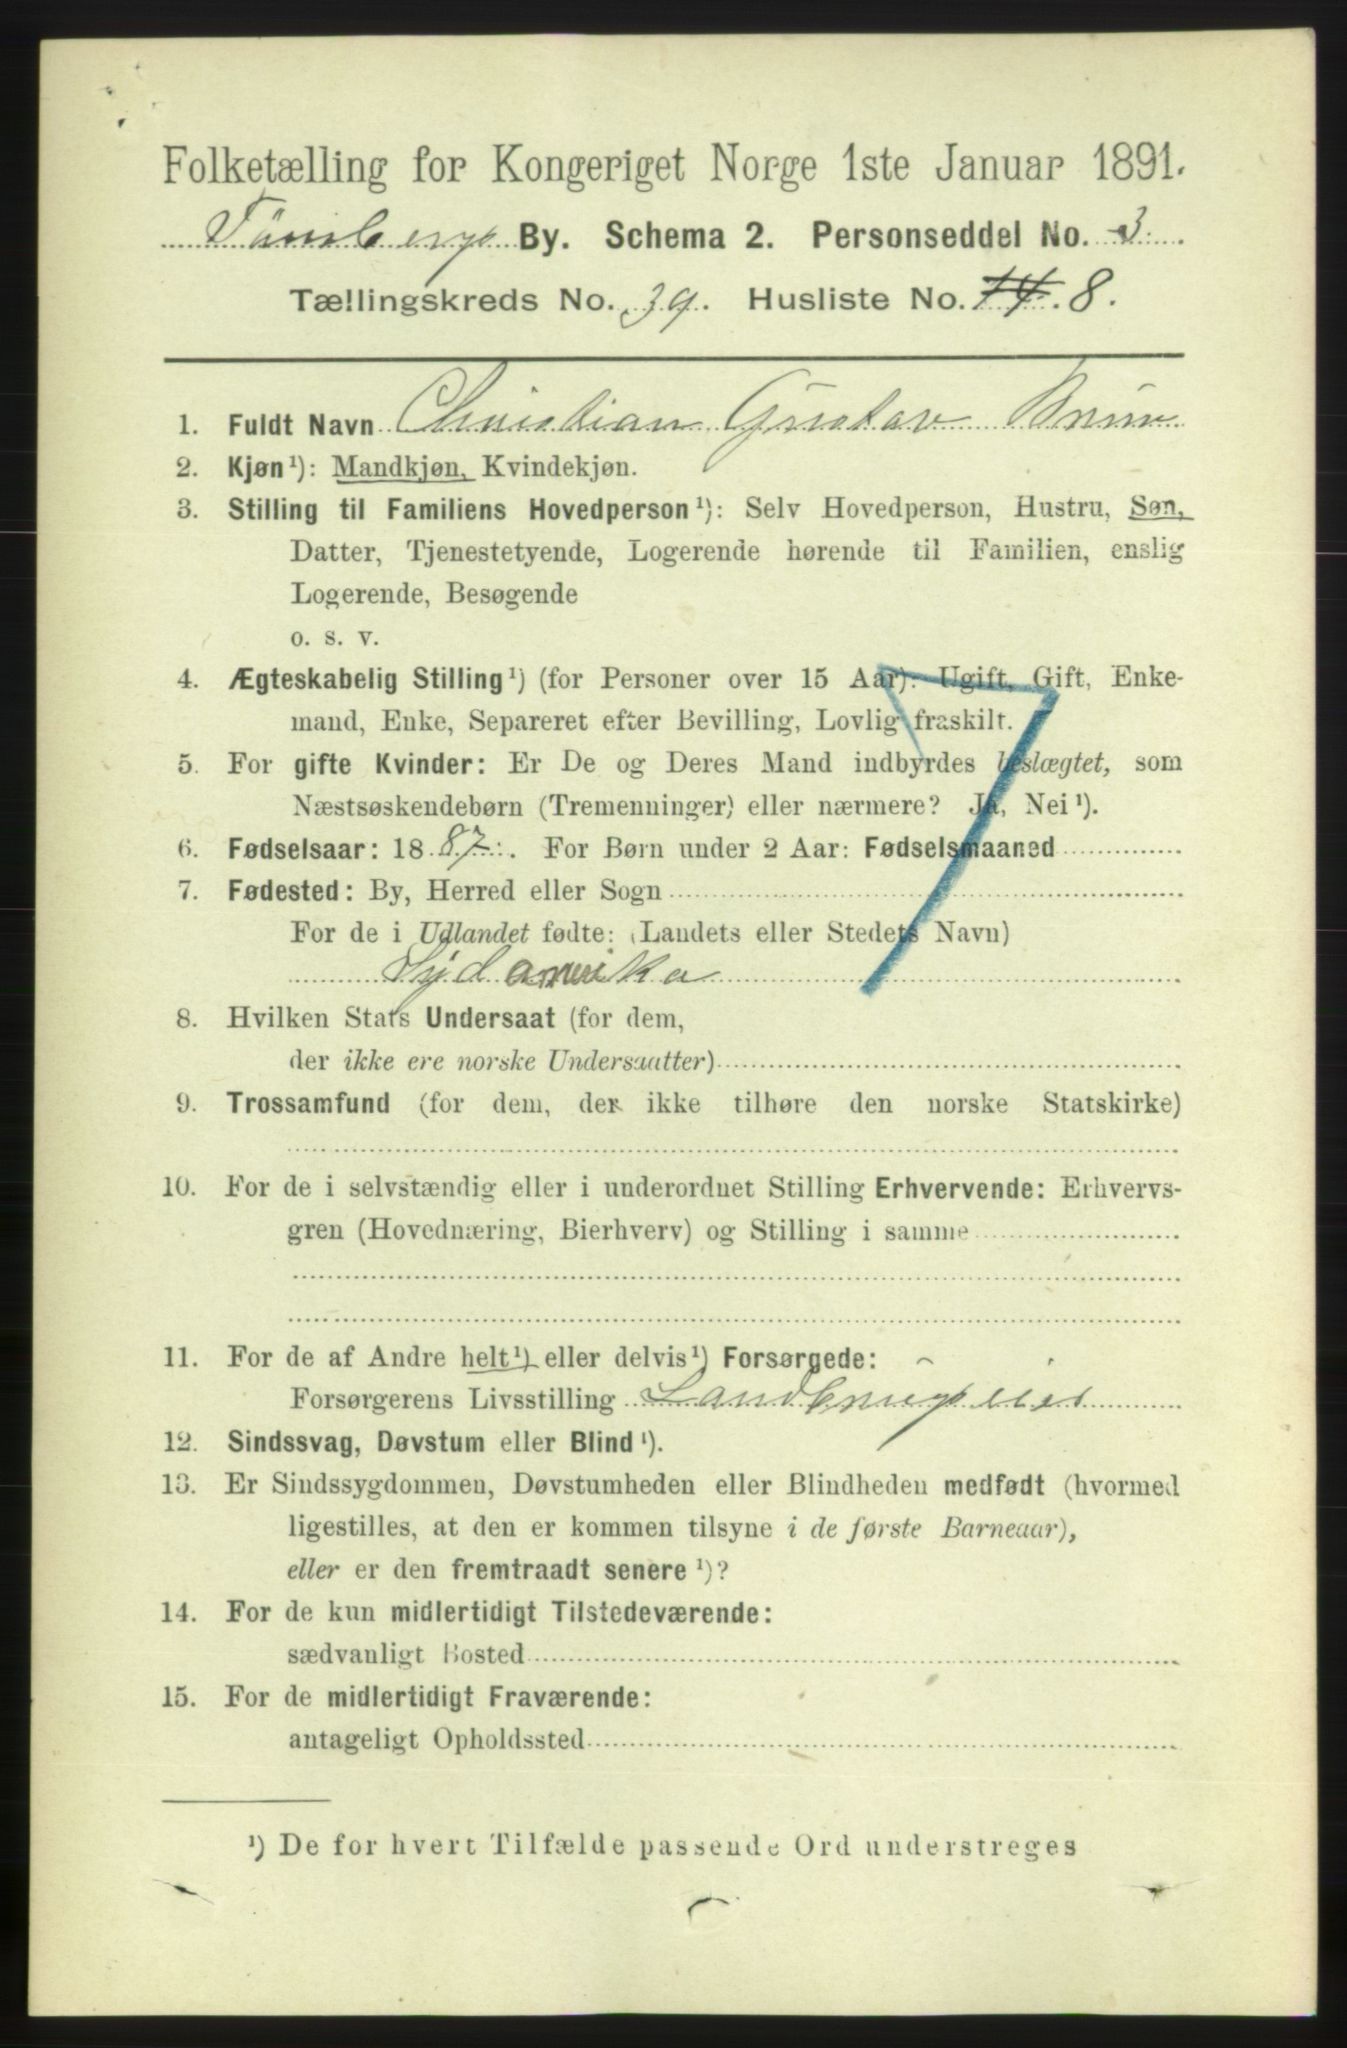 Folketælling for Kongeriget Norge 1ste Januar 1891.
Tönsbergs By. Schema 2. Personseddel No. 3.
Tællingskreds No. 39. Husliste No. 14. 8.
1. Fuldt Navn Christian Gustav Bruun
2. Kjøn¹): Mandkjøn, Kvindekjøn.
3. Stilling til Familiens Hovedperson¹): Selv Hovedperson, Hustru, Søn,
Datter, Tjenestetyende, Logerende hørende til Familien, enslig
Logerende, Besøgende
o. s. v.
4. Ægteskabelig Stilling¹) (for Personer over 15 Aar): Ugift, Gift, Enke-
mand, Enke, Separeret efter Bevilling, Lovlig fraskilt.
5. For gifte Kvinder: Er De og Deres Mand indbyrdes beslægtet, som
Næstsøskendebørn (Tremenninger) eller nærmere? Ja, Nei¹).
6. Fødselsaar: 1887. For Børn under 2 Aar: Fødselsmaaned
7. Fødested: By, Herred eller Sogn
For de i Udlandet fødte: (Landets eller Stedets Navn)
Syd amerika
8. Hvilken Stats Undersaat (for dem,
der ikke ere norske Undersaatter)
9. Trossamfund (for dem, der ikke tilhøre den norske Statskirke)
10. For de i selvstændig eller i underordnet Stilling Erhvervende: Erhvervs-
gren (Hovednæring, Bierhverv) og Stilling i samme
11. For de af Andre helt¹) eller delvis¹) Forsørgede:
Forsørgerens Livsstilling Landbrugseier
12. Sindssvag, Døvstum eller Blind¹).
13. Er Sindssygdommen, Døvstumheden eller Blindheden medfødt (hvormed
ligestilles, at den er kommen tilsyne i de første Barneaar),
eller er den fremtraadt senere¹)?
14. For de kun midlertidigt Tilstedeværende:
sædvanligt Bosted
15. For de midlertidigt Fraværende:
antageligt Opholdssted
¹) De for hvert Tilfælde passende Ord understreges